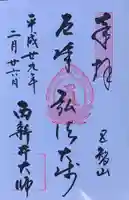 奉拝
五智山
厄除 弘法大師
西新井大師
平成廿九年
二月廿六日